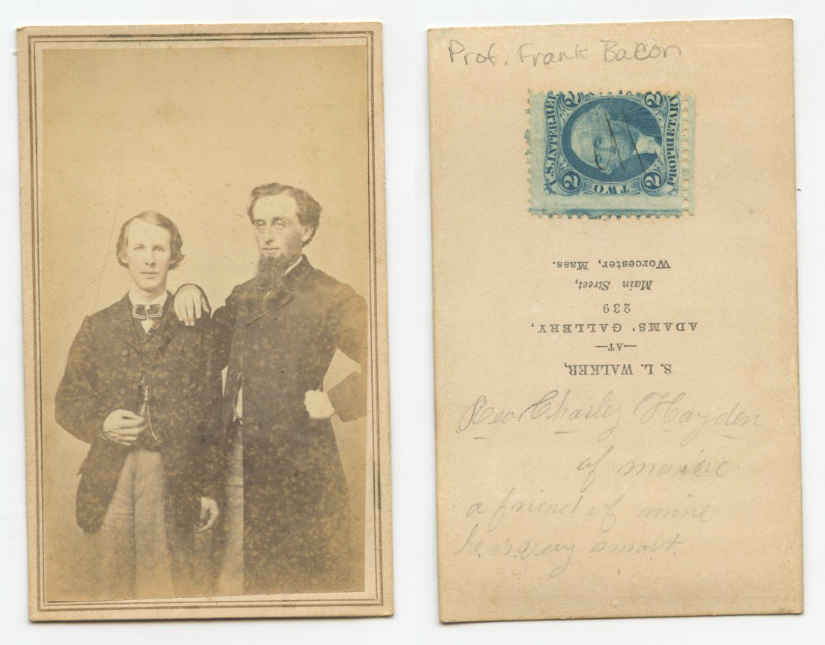 Prof. Frank Bacon
U.S. INTER. REV.
PROPRIETARY
TWO
2
2
2
2
S. L. WALKER,
—AT—
ADAMS' GALLERY,
239
Main Street,
Worcester, Mass.
Rev Charley Hayden
of maine
a friend of mine
he is very smart.